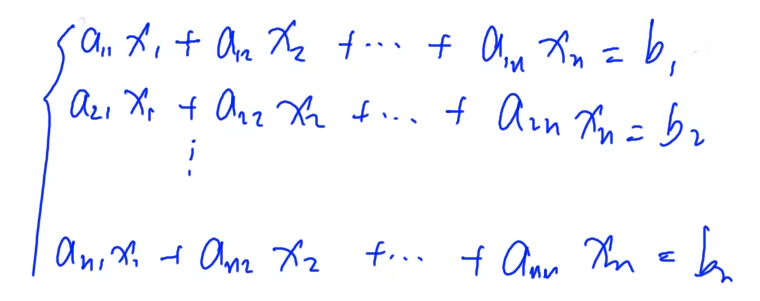 { a₁₁ x₁ + a₁₂ x₂ + ··· + a₁ₙ xₙ = b₁
a₂₁ x₁ + a₂₂ x₂ + ··· + a₂ₙ xₙ = b₂
⋮
aₙ₁ x₁ + aₙ₂ x₂ + ··· + aₙₙ xₙ = bₙ